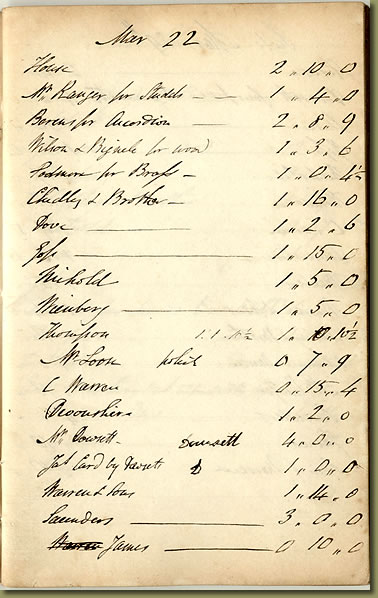 Mar 22
House 2 " 10 " 0
Mr Ranger for Studels — — 1 " 4 " 0
Berens for Accordion — 2 " 8 " 9
Wilson & for wood 1 " 3 " 6
Podmore for Brass — 1 " 0 " 4½
Chidley & Brother — 1 " 16 " 0
Dove — 1 " 2 " 6
Goss — 1 " 15 " 0
Nickold 1 " 5 " 0
Weinberg — 1 " 5 " 0
Thompson 1 " 10½
Mr Loon 0 " 7 " 9
C Warren 0 " 15 " 4
Devonshire 1 " 2 " 0
Mr Dowsett 4 " 0 " 0
Card by 1 " 0 " 0
Warren & Sons 1 " 14 " 0
Saunders — 3 " 0 " 0
James — 0 10 " 0